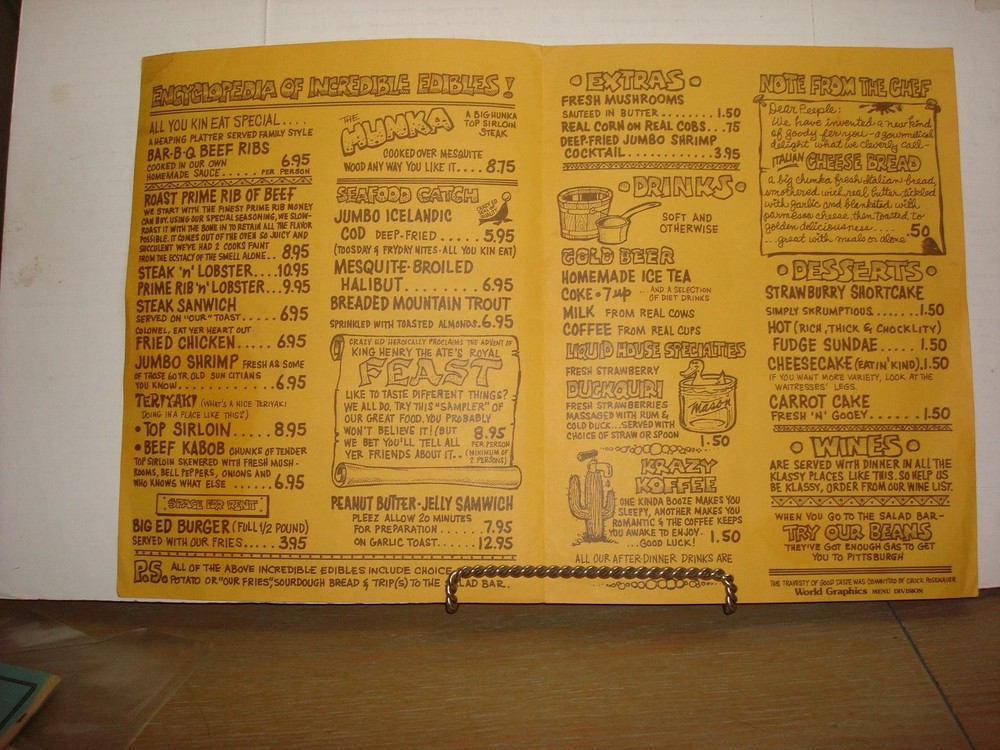 ENCYCLOPEDIA OF INCREDIBLE EDIBLES!
ALL YOU KIN EAT SPECIAL....
A HEAPING PLATTER SERVED FAMILY STYLE
BAR·B·Q BEEF RIBS
COOKED IN OUR OWN 6.95
HOMEMADE SAUCE...... PER PERSON
ROAST PRIME RIB OF BEEF
WE START WITH THE FINEST PRIME RIB MONEY
CAN BUY. USING OUR SPECIAL SEASONING, WE SLOW-
ROAST IT WITH THE BONE IN TO RETAIN ALL THE FLAVOR
POSSIBLE. IT COMES OUT OF THE OVEN SO JUICY AND
SUCCULENT WE'VE HAD 2 COOKS FAINT
FROM THE ECSTACY OF THE SMELL ALONE.. 8.95
STEAK 'N' LOBSTER...10.95
PRIME RIB 'N' LOBSTER...9.95
STEAK SANWICH
SERVED ON "OUR" TOAST..... 6.95
COLONEL, EAT YER HEART OUT
FRIED CHICKEN..... 6.95
JUMBO SHRIMP FRESH AS SOME
OF THOSE 60 YR. OLD SUN CITIANS
YOU KNOW............6.95
TERIYAKI (WHAT'S A NICE TERIYAKI
DOING IN A PLACE LIKE THIS?)
• TOP SIRLOIN.....8.95
• BEEF KABOB CHUNKS OF TENDER
TOP SIRLOIN SKEWERED WITH FRESH MUSH-
ROOMS, BELL PEPPERS, ONIONS AND
WHO KNOWS WHAT ELSE.....6.95
SPACE FOR RENT
BIG ED BURGER (FULL 1/2 POUND)
SERVED WITH OUR FRIES.....3.95
THE HUNKA
A BIG HUNKA
TOP SIRLOIN
STEAK
COOKED OVER MESQUITE
WOOD ANY WAY YOU LIKE IT....8.75
SEAFOOD CATCH
JUMBO ICELANDIC
COD DEEP-FRIED.....5.95
(TOOSDAY & FRYDAY NITES-ALL YOU KIN EAT)
MESQUITE-BROILED
HALIBUT..........6.95
BREADED MOUNTAIN TROUT
SPRINKLED WITH TOASTED ALMONDS.6.95
CRAZY ED HEROICALLY PROCLAIMS THE ADVENT OF
KING HENRY THE ATE'S ROYAL
FEAST
LIKE TO TASTE DIFFERENT THINGS?
WE ALL DO. TRY THIS "SAMPLER" OF
OUR GREAT FOOD. YOU PROBABLY
WON'T BELIEVE IT! (BUT 8.95
WE BET YOU'LL TELL ALL PER PERSON
YER FRIENDS ABOUT IT.. (MINIMUM OF
2 PERSONS)
PEANUT BUTTER·JELLY SAMWICH
PLEEZ ALLOW 20 MINUTES
FOR PREPARATION.......7.95
ON GARLIC TOAST.....12.95
P.S. ALL OF THE ABOVE INCREDIBLE EDIBLES INCLUDE CHOICE
POTATO OR "OUR FRIES," SOURDOUGH BREAD & TRIP(S) TO THE SALAD BAR.
• EXTRAS •
FRESH MUSHROOMS
SAUTEED IN BUTTER........1.50
REAL CORN ON REAL COBS...75
DEEP-FRIED JUMBO SHRIMP
COCKTAIL.............3.95
• DRINKS •
SOFT AND
OTHERWISE
COLD BEER
HOMEMADE ICE TEA
COKE • 7up ...AND A SELECTION
OF DIET DRINKS
MILK FROM REAL COWS
COFFEE FROM REAL CUPS
LIQUID HOUSE SPECIALTIES
FRESH STRAWBERRY
DUCKQUIRI
FRESH STRAWBERRIES
MASSAGED WITH RUM &
COLD DUCK...SERVED WITH
CHOICE OF STRAW OR SPOON
1.50
Mason
KRAZY
KOFFEE
ONE KINDA BOOZE MAKES YOU
SLEEPY, ANOTHER MAKES YOU
ROMANTIC & THE COFFEE KEEPS
YOU AWAKE TO ENJOY. 1.50
...GOOD LUCK!
ALL OUR AFTER-DINNER DRINKS ARE
NOTE FROM THE CHEF
Dear Peeple:
We have invented a new kind
of goody fer you—a gourmetical
delight what we cleverly call—
ITALIAN CHEESE BREAD
a big chunka fresh Italian bread,
smothered with real butter, tickled
with garlic and blanketed with
parmesan cheese, then toasted to
golden deliciousness.... .50
...great with meals or alone
• DESSERTS •
STRAWBURRY SHORTCAKE
SIMPLY SKRUMPTIOUS.......1.50
HOT (RICH, THICK & CHOCKLITY)
FUDGE SUNDAE.....1.50
CHEESECAKE (EATIN' KIND).1.50
IF YOU WANT MORE VARIETY, LOOK AT THE
WAITRESSES' LEGS.
CARROT CAKE
FRESH 'N' GOOEY........1.50
• WINES •
ARE SERVED WITH DINNER IN ALL THE
KLASSY PLACES LIKE THIS. SO HELP US
BE KLASSY, ORDER FROM OUR WINE LIST.
WHEN YOU GO TO THE SALAD BAR—
TRY OUR BEANS
THEY'VE GOT ENOUGH GAS TO GET
YOU TO PITTSBURGH
THE TRAVESTY OF GOOD TASTE WAS COMMITTED BY CHUCK
World Graphics MENU DIVISION